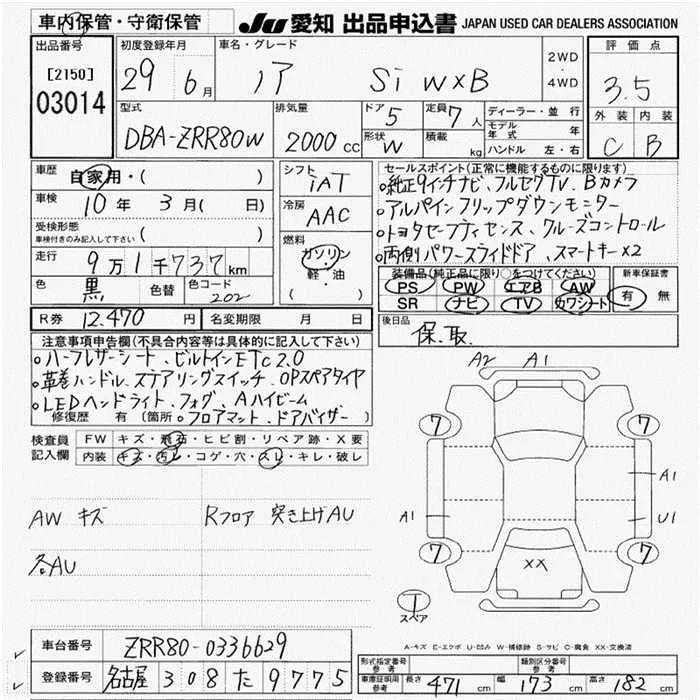 車内保管・守衛保管 JU 愛知 出品申込書 JAPAN USED CAR DEALERS ASSOCIATION
出品番号 初度登録年月 車名・グレード 2WD ・ 4WD 評価点
[2150] 29 6月 ノア Si W×B 3.5
03014
型式 排気量 ドア 5 定員 7人 ディーラー・並行 外装 内装
DBA-ZRR80W 2000cc 形状 W 積載 kg モデル年式 年 C B
ハンドル 左・右
車歴 自家用・( ) シフト iAT セールスポイント(正常に機能するものに限ります)
車検 10年 3月( 日) 冷房 AAC 。純正9インチナビ、フルセグTV、Bカメラ
受検形態 ( ) 。アルパインフリップダウンモニター
車検付きのみ記入して下さい 燃料 。トヨタセーフティセンス、クルーズコントロール
走行 9万1千737km ガソリン 。両側パワースライドドア、スマートキー×2
色 黒 色替 色コード 202 軽・油 ( ) 装備品(純正品に限り○をつけてください) 新車保証書
PS PW エアB AW 有 無
SR ナビ TV カワシート
R券 12,470円 名変期限 月 日 後日品
保、取
注意事項申告欄(不具合内容等は具体的に記入して下さい)
。ハーフレザーシート、ビルトインETC2.0
。革巻ハンドル、ステアリングスイッチ、OPスペアタイヤ
。LEDヘッドライト、フォグ、Aハイビーム
修復歴 有 [箇所 。フロアマット、ドアバイザー ]
検査員記入欄 FW キズ・飛石・ヒビ割・リペア跡・X要
内装 キズ・汚レ・コゲ・穴・スレ・キレ・破レ
A2 A1
7 7
A1
AW キズ Rフロア 突き上げAU A1 U1
各AU 7 7
XX
T
スペア
A-キズ E-エクボ U-凹み W-補修跡 S-サビ C-腐食 XX-交換済
車台番号 ZRR80-0336629
登録番号 名古屋 308 た 9775
型式指定番号 参考 類別区分番号 参考
車庫証明用 参考 長さ 471cm 幅 173cm 高さ 182cm